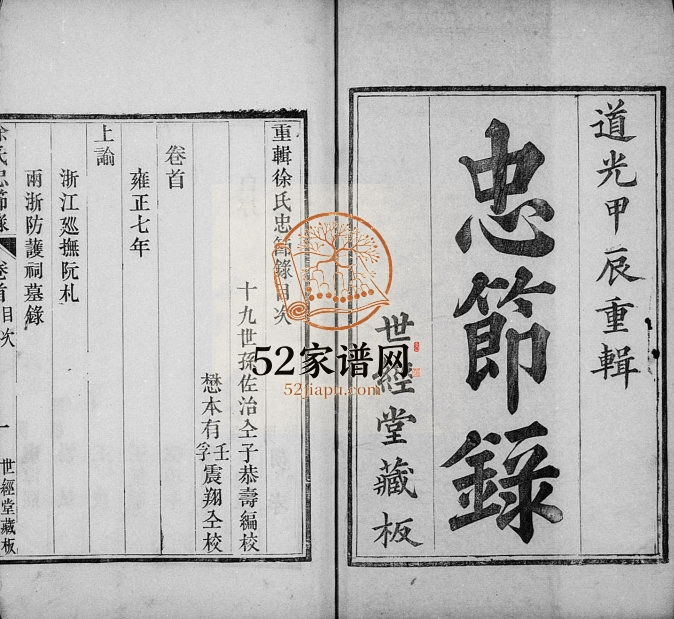 道光甲辰重輯
忠節錄
世經堂藏板
重輯徐氏忠節錄目次
十九世孫佐治仝子恭壽編校
懋本有壬孚震翔仝校
卷首
雍正七年
上諭
浙江廵撫阮札
兩浙防護祠墓錄
徐氏忠節錄 卷首目次 一 世經堂藏板
52家谱网
52jiapu.com